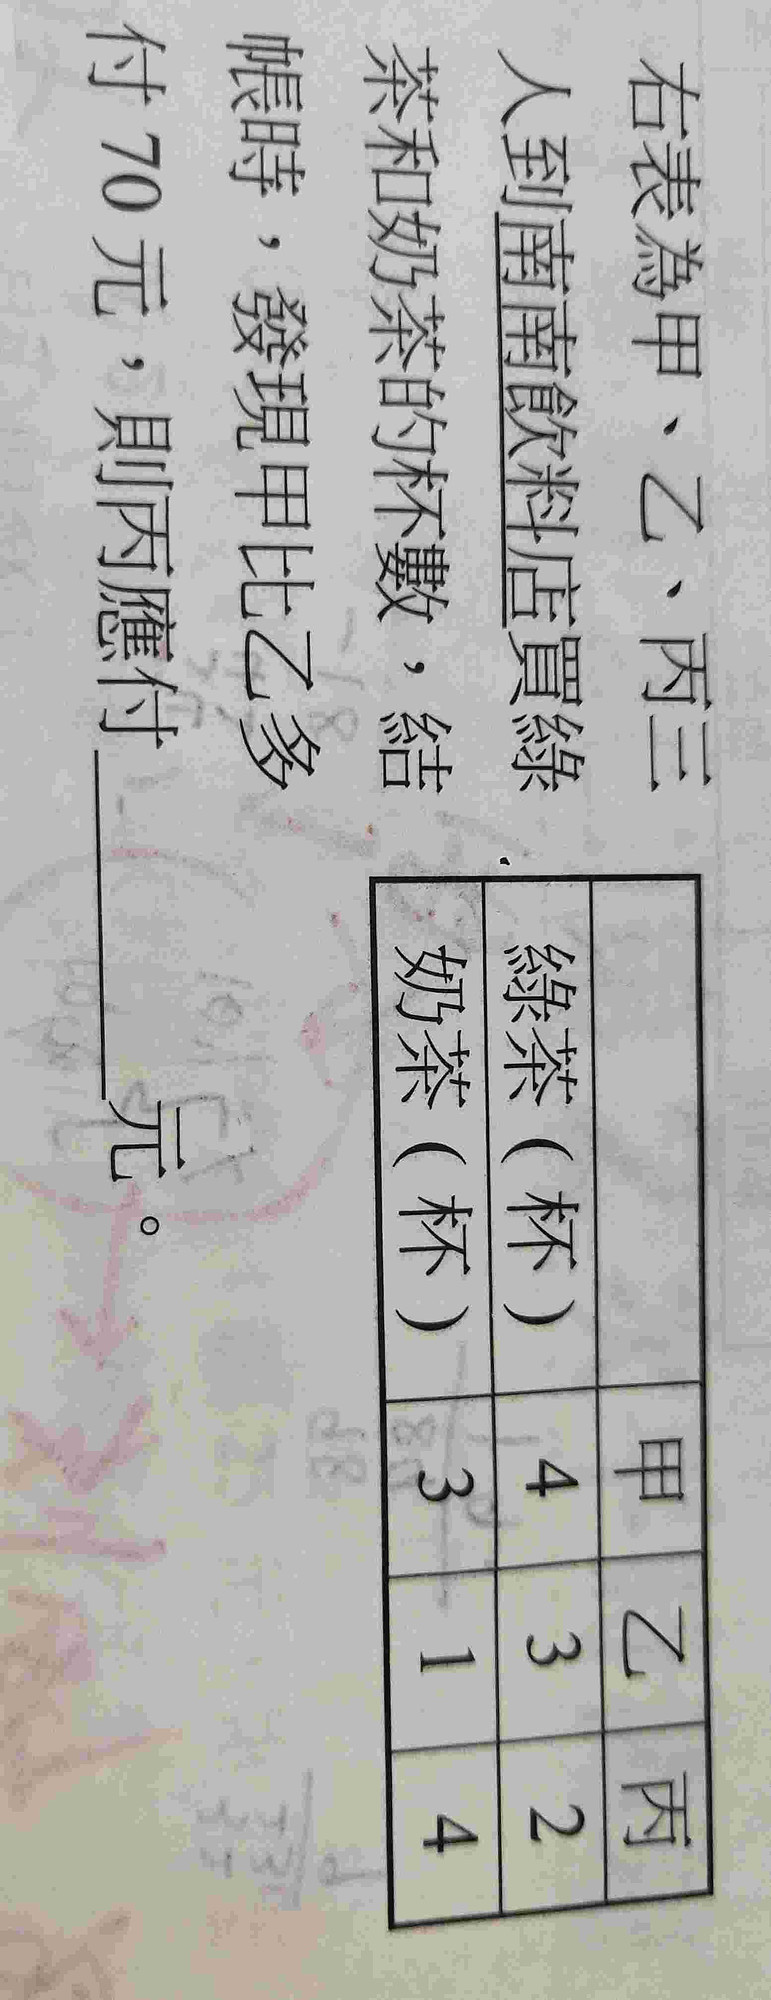 右表為甲、乙、丙三
人到南南飲料店買綠
茶和奶茶的杯數，結
帳時，發現甲比乙多
付 70 元，則丙應付＿＿＿＿＿元。
甲 乙 丙
綠茶（杯） 4 3 2
奶茶（杯） 3 1 4